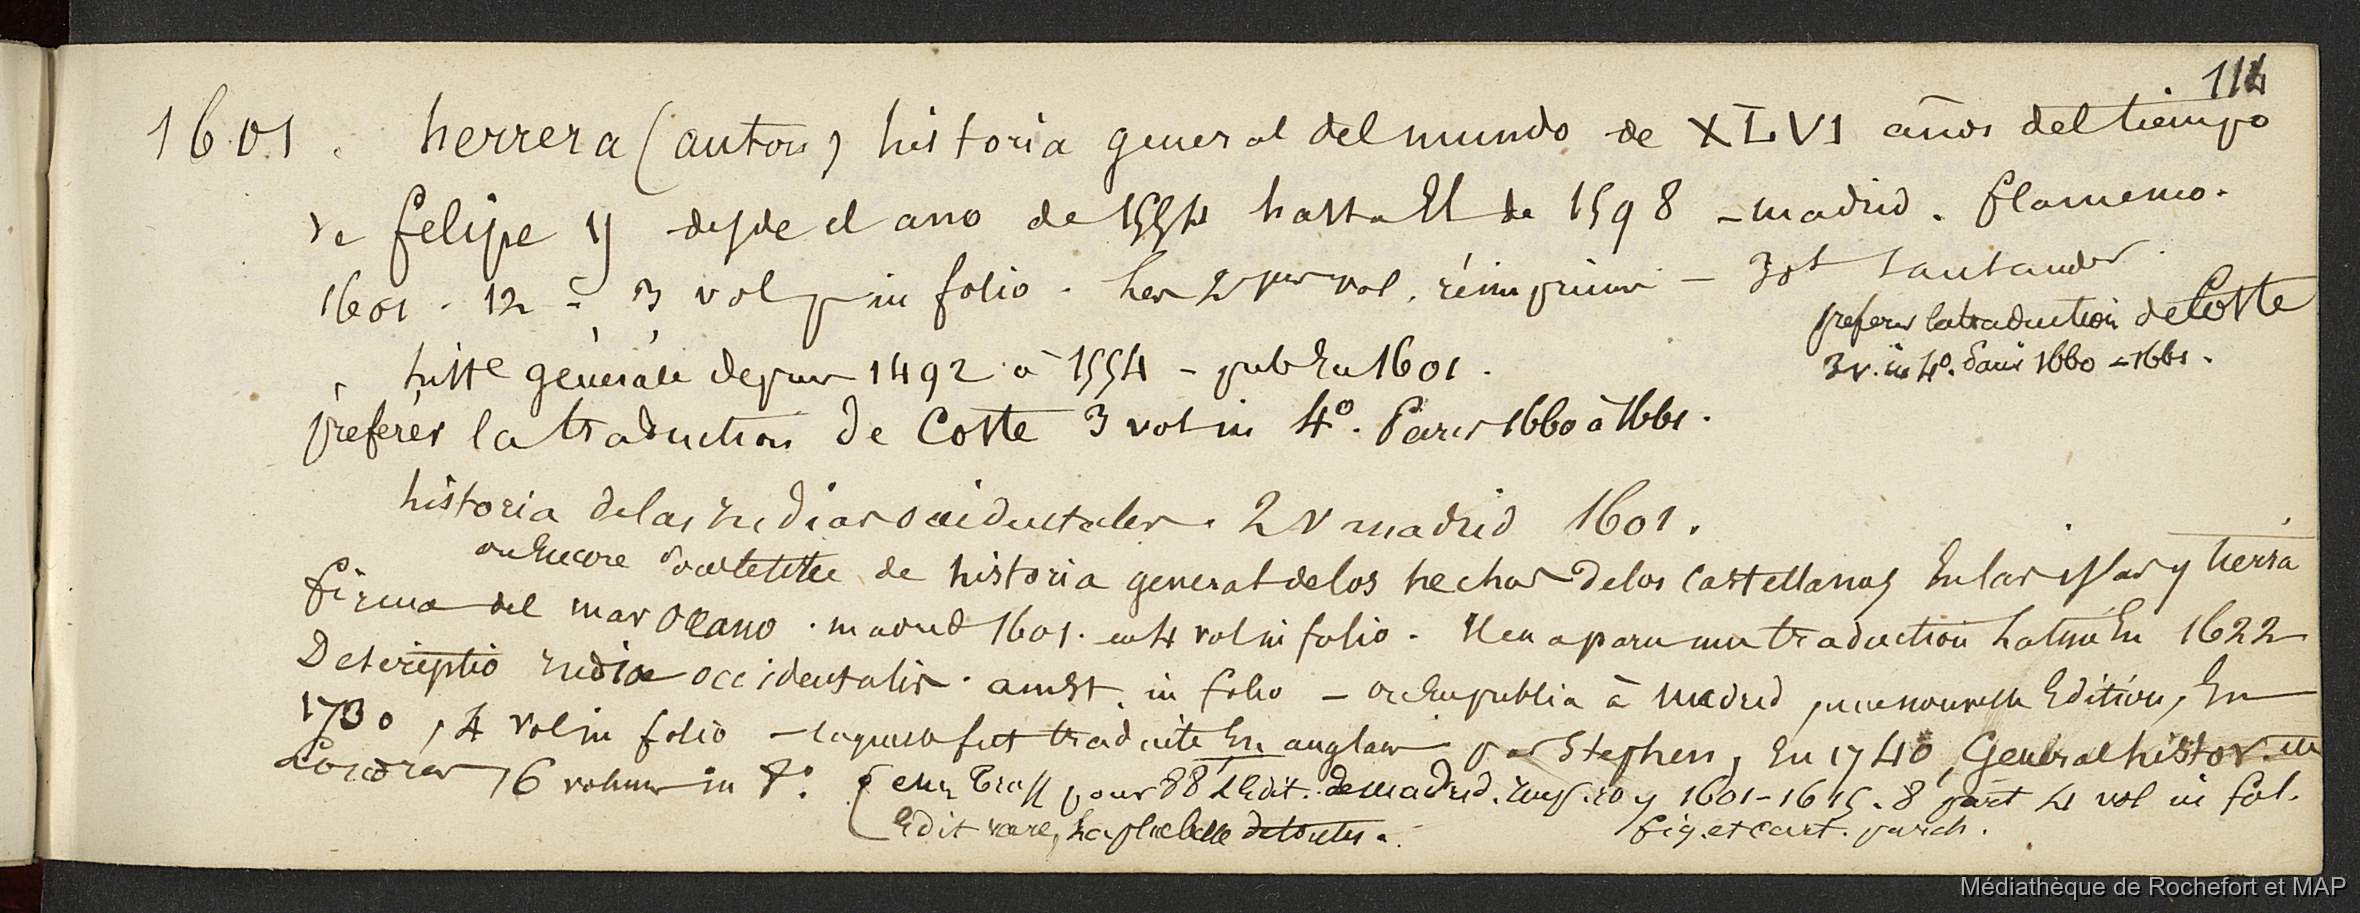 114
1601. herrera (anton) historia general del mundo de XLVI años del tiempo
de felipe y desde el ano de 1554 hasta El de 1598 - madrid. flamenco.
1601. 12 = 3 vol in folio. Les 2 per vol. réimprimé - 30t Santander.
preferer la traduction de Coste
3 v. in 4°. Paris 1660 - 1661.
histe générale depuis 1492 à 1554 - pub En 1601.
préferér la traduction de Coste 3 vol in 4°. Paris 1660 à 1661.
historia de las indias occidentales. 2 v madrid 1601.
ou Encore sous le titre de historia general de los hechos de los Castellanos En las islas y tierra
firma del mar Oceano. madrid 1601. en 4 vol in folio. Il en a paru une traduction Latine En 1622
Descriptio indiae occidentalis. amst. in folio - on En publia à Madrid, une nouvelle Edition, En
1730, 4 vol in folio - laquelle fut traduite En anglais par Stephens, En 1740, General histor. in
Londres, 6 volumes in 8°. { chez Tross pour 88 f. L'Edit. de madrid. roy 1601-1615. 8 part 4 vol in fol.
Edit rare, La plus belle de toutes. fig. et cart. parch.
Médiathèque de Rochefort et MAP